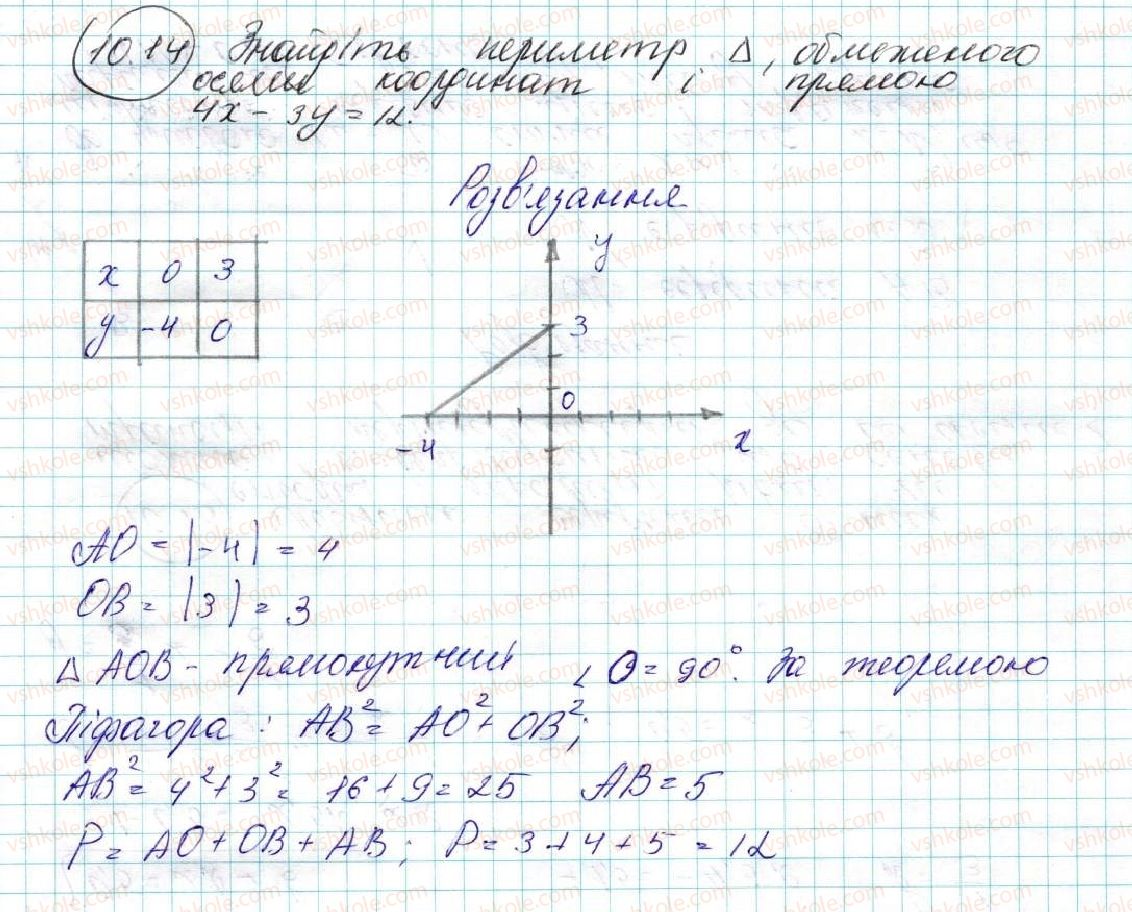 10.14 Знайдіть периметр Δ, обмеженого
осями координат і прямою
4x - 3y = 12.
Розв'язання
x 0 3
y -4 0
y
3
0
-4
x
AO = |-4| = 4
OB = |3| = 3
Δ AOB - прямокутний ∠ O = 90°. За теоремою
Піфагора : AB² = AO² + OB²;
AB² = 4² + 3² = 16 + 9 = 25 AB = 5
P = AO + OB + AB; P = 3 + 4 + 5 = 12